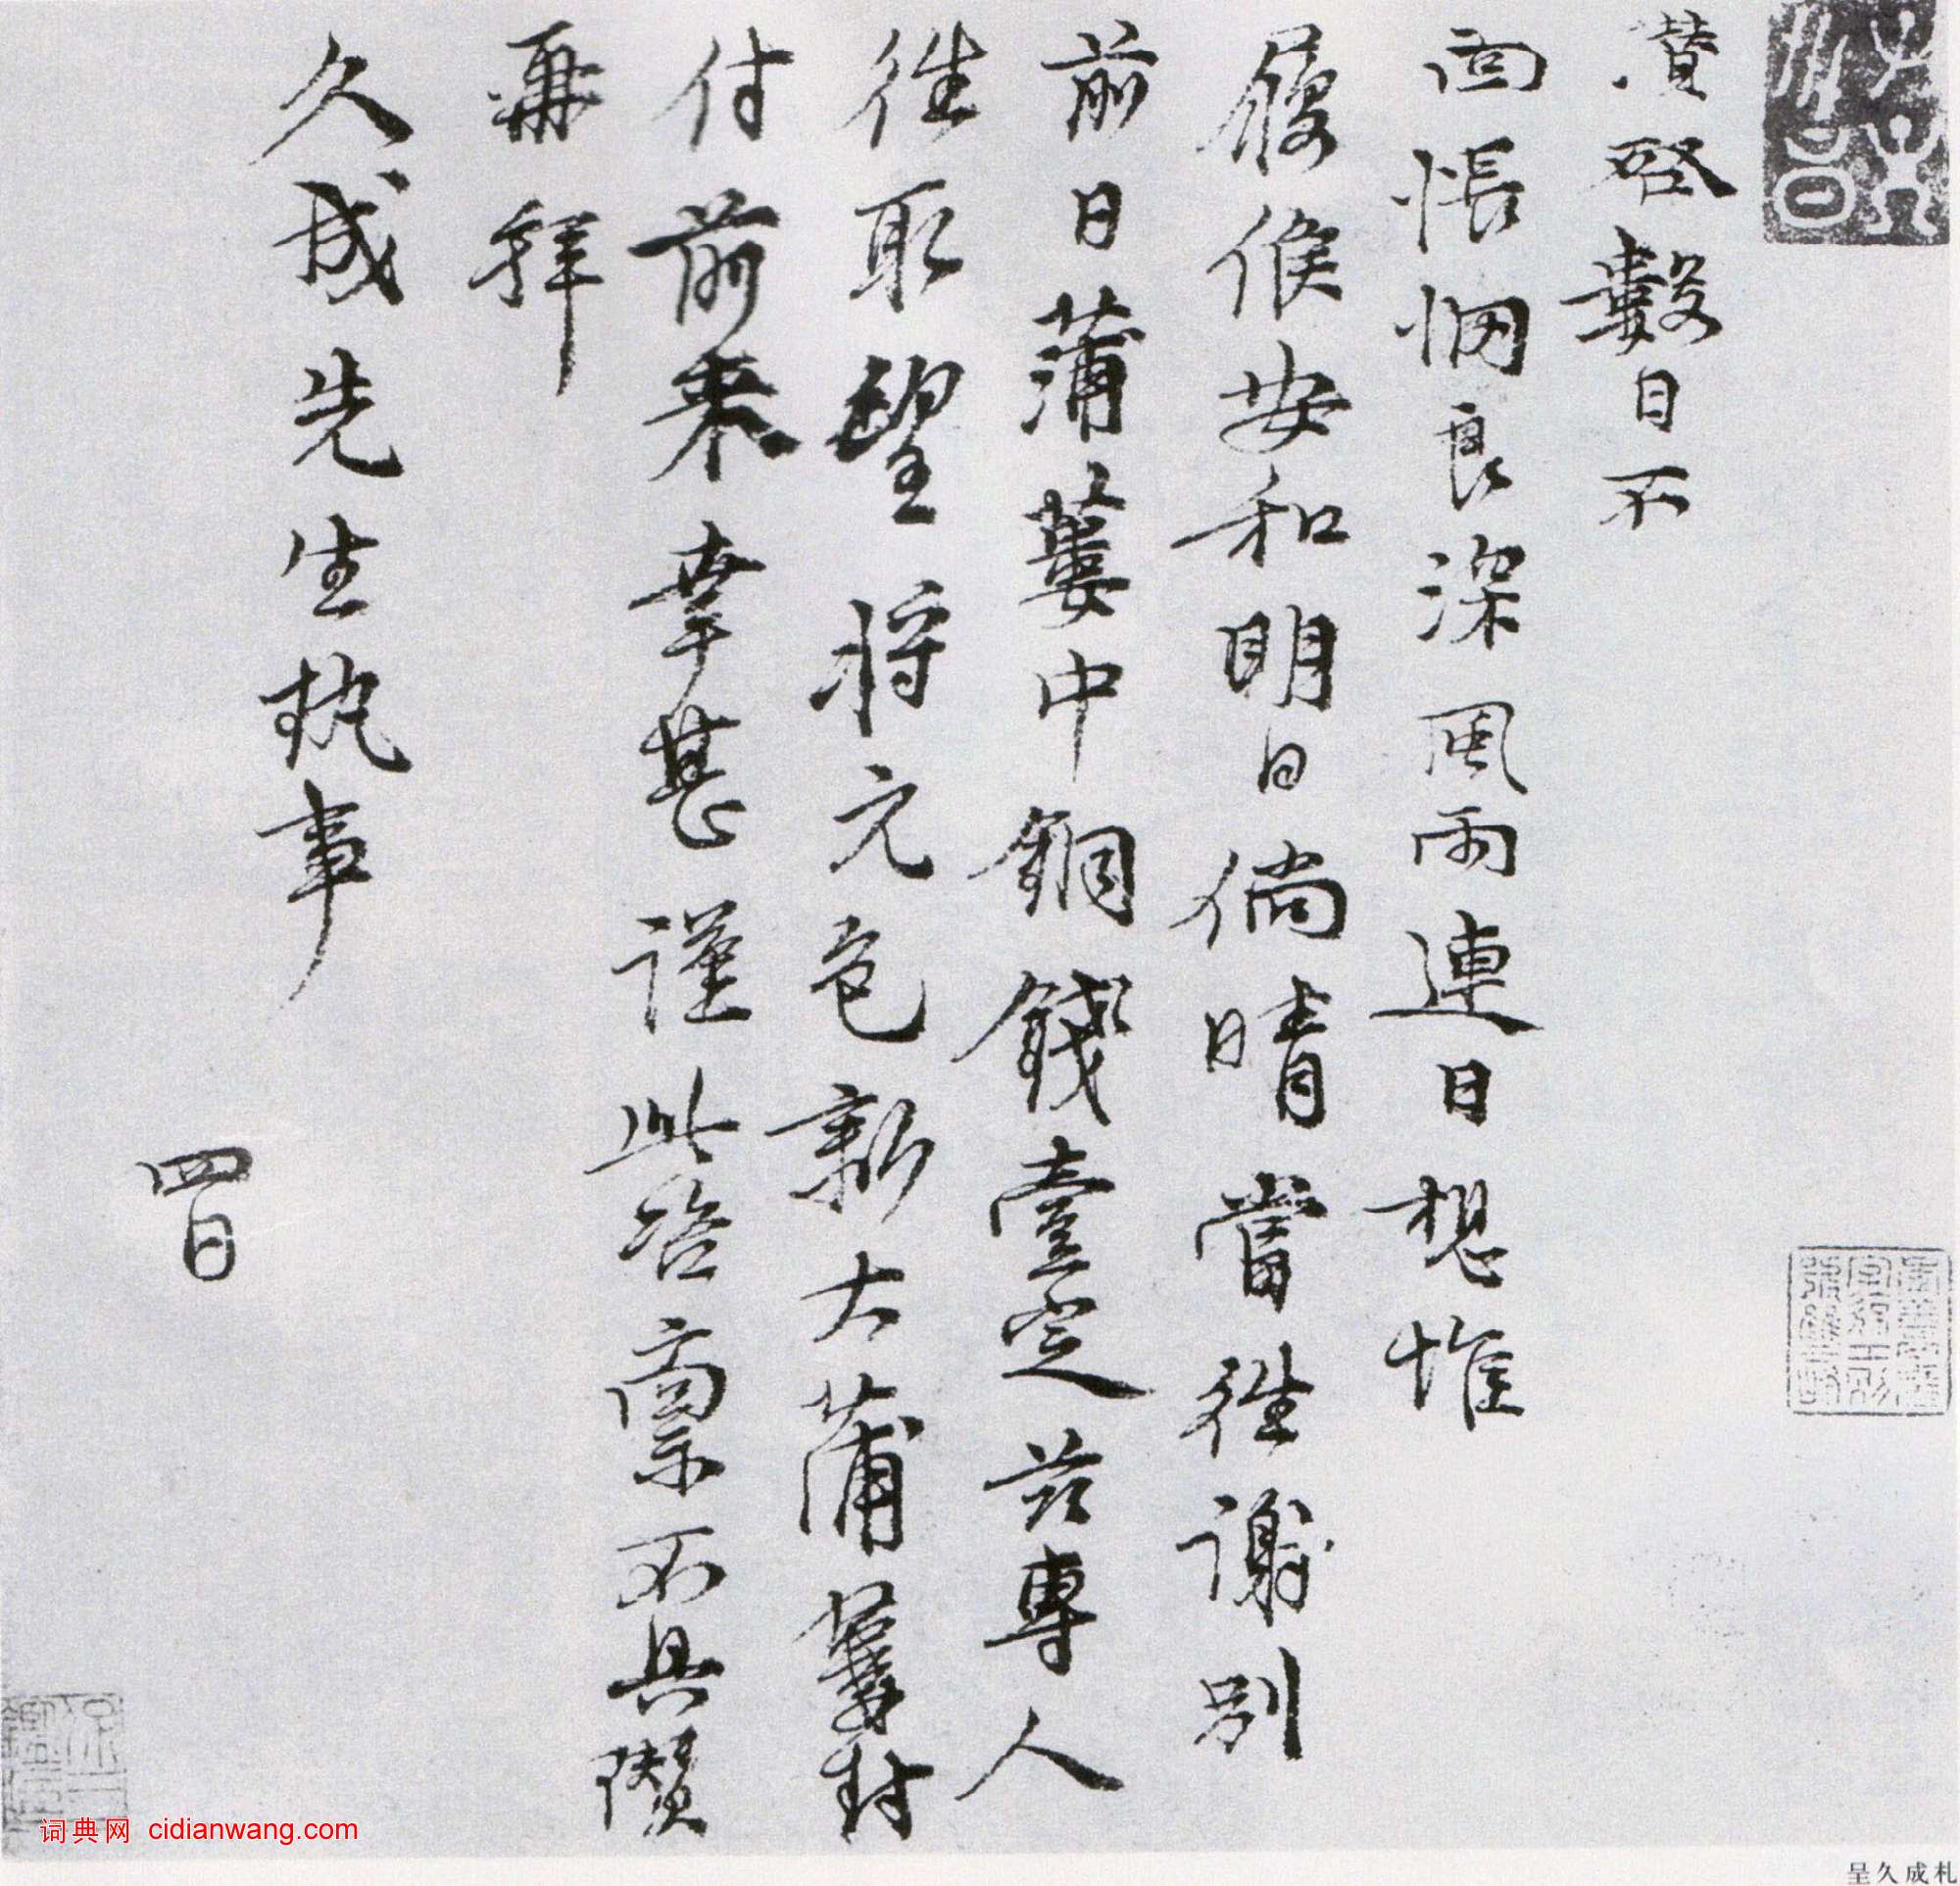 瓚啓數日不
面悵惘良深風雨連日想惟
履候安和明日倘晴當往謝別
前日蒲蔞中銅錢壹定茲專人
往取望將元色新大蒲蔞封
付前来幸甚謹此咨稟不具瓚
再拜
久成先生執事
四日
词典网 cidianwang.com
呈久成札